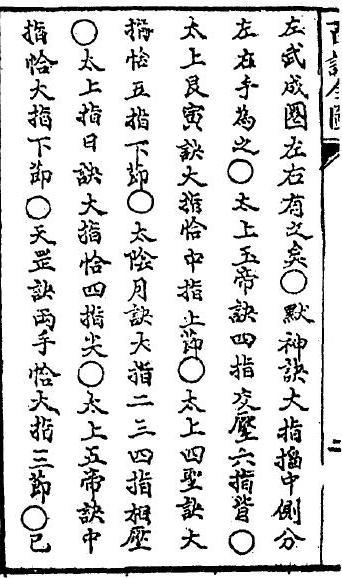 左式成圈左右有之矣〇默神訣大指搯中側分
左右手為之〇太上玉帝訣四指交壓六指背〇
太上艮寅訣大指恰中指上節〇太上四聖訣大
指恰五指下節〇太陰月訣大指二三四指相壓
〇太上指日訣大指恰四指尖〇太上五帝訣中
指恰大指下節〇天罡訣両手恰大指三節〇已